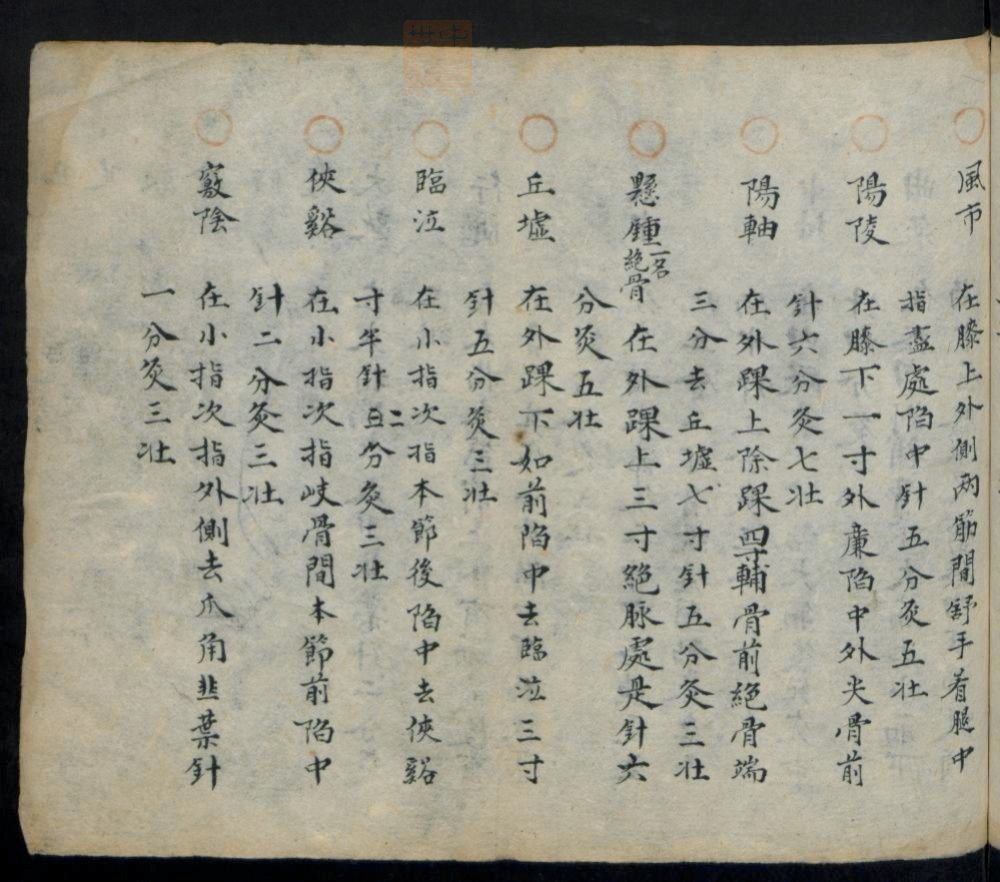 風市 在膝上外側兩筋間舒手着腿中
指盡處陷中針五分灸五壯
陽陵 在膝下一寸外廉陷中外尖骨前
針六分灸七壯
陽軸 在外踝上除踝四寸輔骨前絕骨端
三分去丘墟七寸針五分灸三壯
懸鍾一名絕骨 在外踝上三寸絕脉處是針六
分灸五壯
丘墟 在外踝下如前陷中去臨泣三寸
針五分灸三壯
臨泣 在小指次指本節後陷中去俠谿
寸半針二分灸三壯
俠谿 在小指次指岐骨間本節前陷中
針二分灸三壯
竅陰 在小指次指外側去爪角韭葉針
一分灸三壯